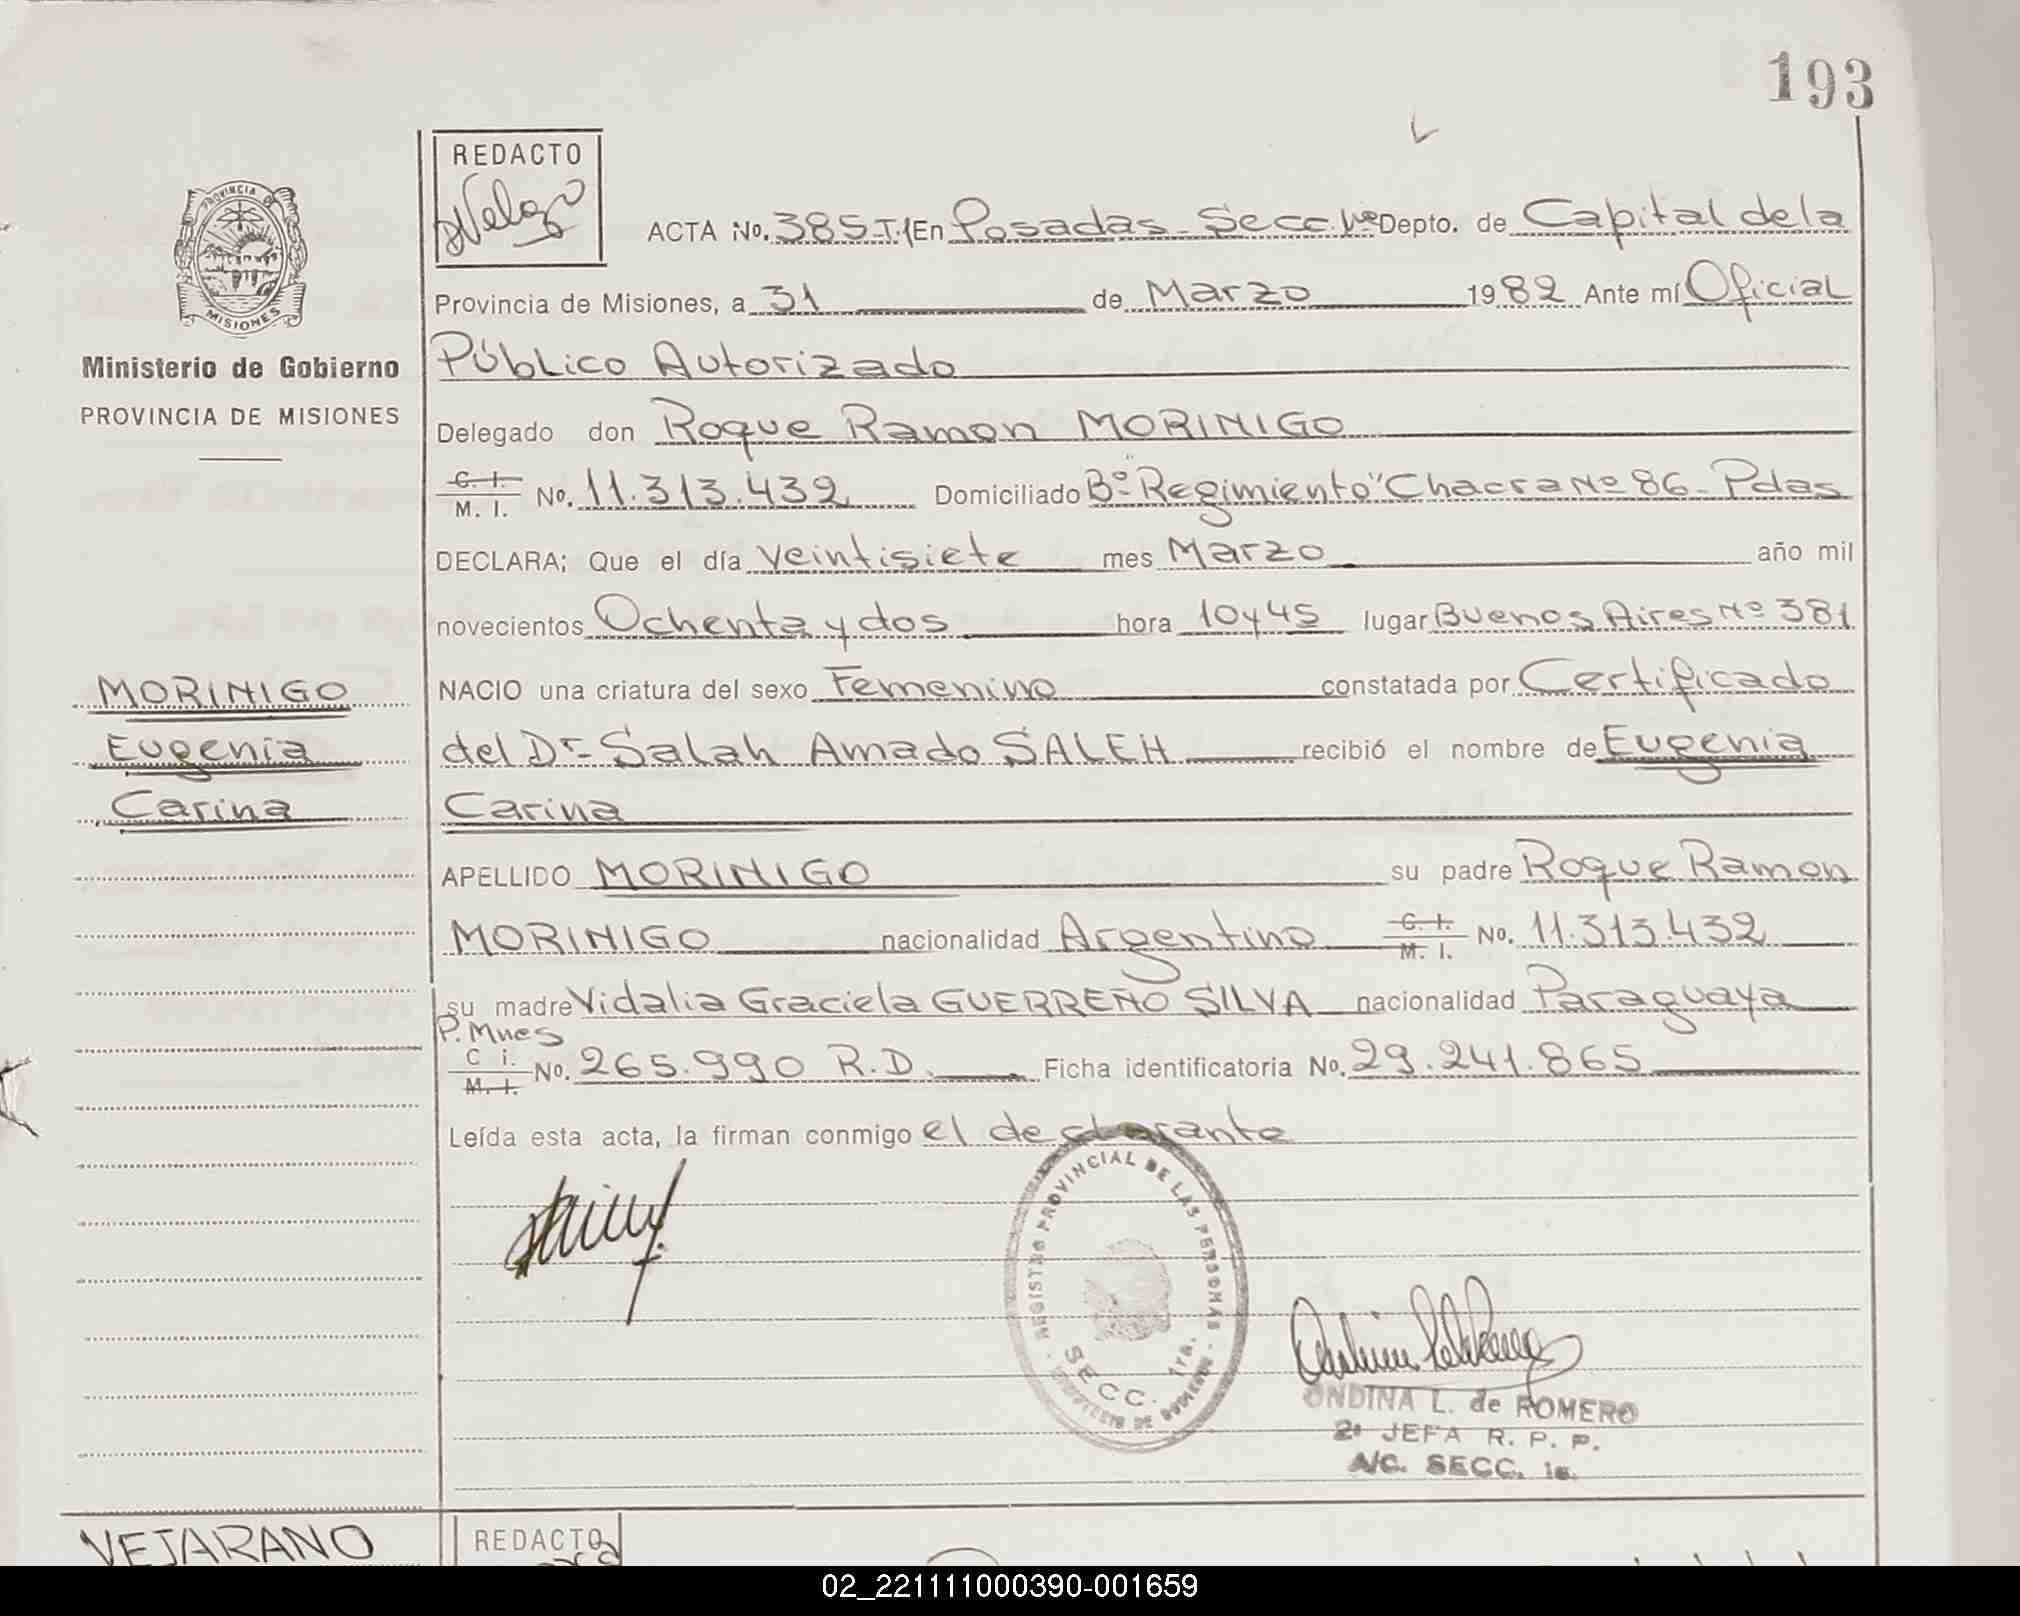 193
REDACTO
PROVINCIA DE
MISIONES
ACTA No. 385.T.1 En Posadas - Secc. 1ra Depto. de Capital de la
Provincia de Misiones, a 31 de Marzo 1982 Ante mí Oficial
Ministerio de Gobierno
Público Autorizado
PROVINCIA DE MISIONES
Delegado don Roque Ramon MORINIGO
C. I.
M. I. No. 11.313.432 Domiciliado Bº "Regimiento" Chacra Nº 86 - Pdas
DECLARA; Que el día veintisiete mes Marzo año mil
novecientos Ochenta y dos hora 10 y 45 lugar Buenos Aires Nº 381
MORINIGO
Eugenia
Carina
NACIO una criatura del sexo Femenino constatada por Certificado
del Dr. Salah Amado SALEH recibió el nombre de Eugenia
Carina
APELLIDO MORINIGO su padre Roque Ramon
MORINIGO nacionalidad Argentino C. I. M. I. No. 11.313.432
su madre Vidalia Graciela GUERREÑO SILVA nacionalidad Paraguaya
P. Mnes
C i. M. I. No. 265.990 R.D. Ficha identificatoria No. 29.241.865
Leída esta acta, la firman conmigo el declarante
REGISTRO PROVINCIAL DE LAS PERSONAS
SECC. 1ra.
DE GOBIERNO
ONDINA L. de ROMERO
2ª JEFA R. P. P.
A/C. SECC. 1a.
VEJARANO
REDACTO
02_221111000390-001659